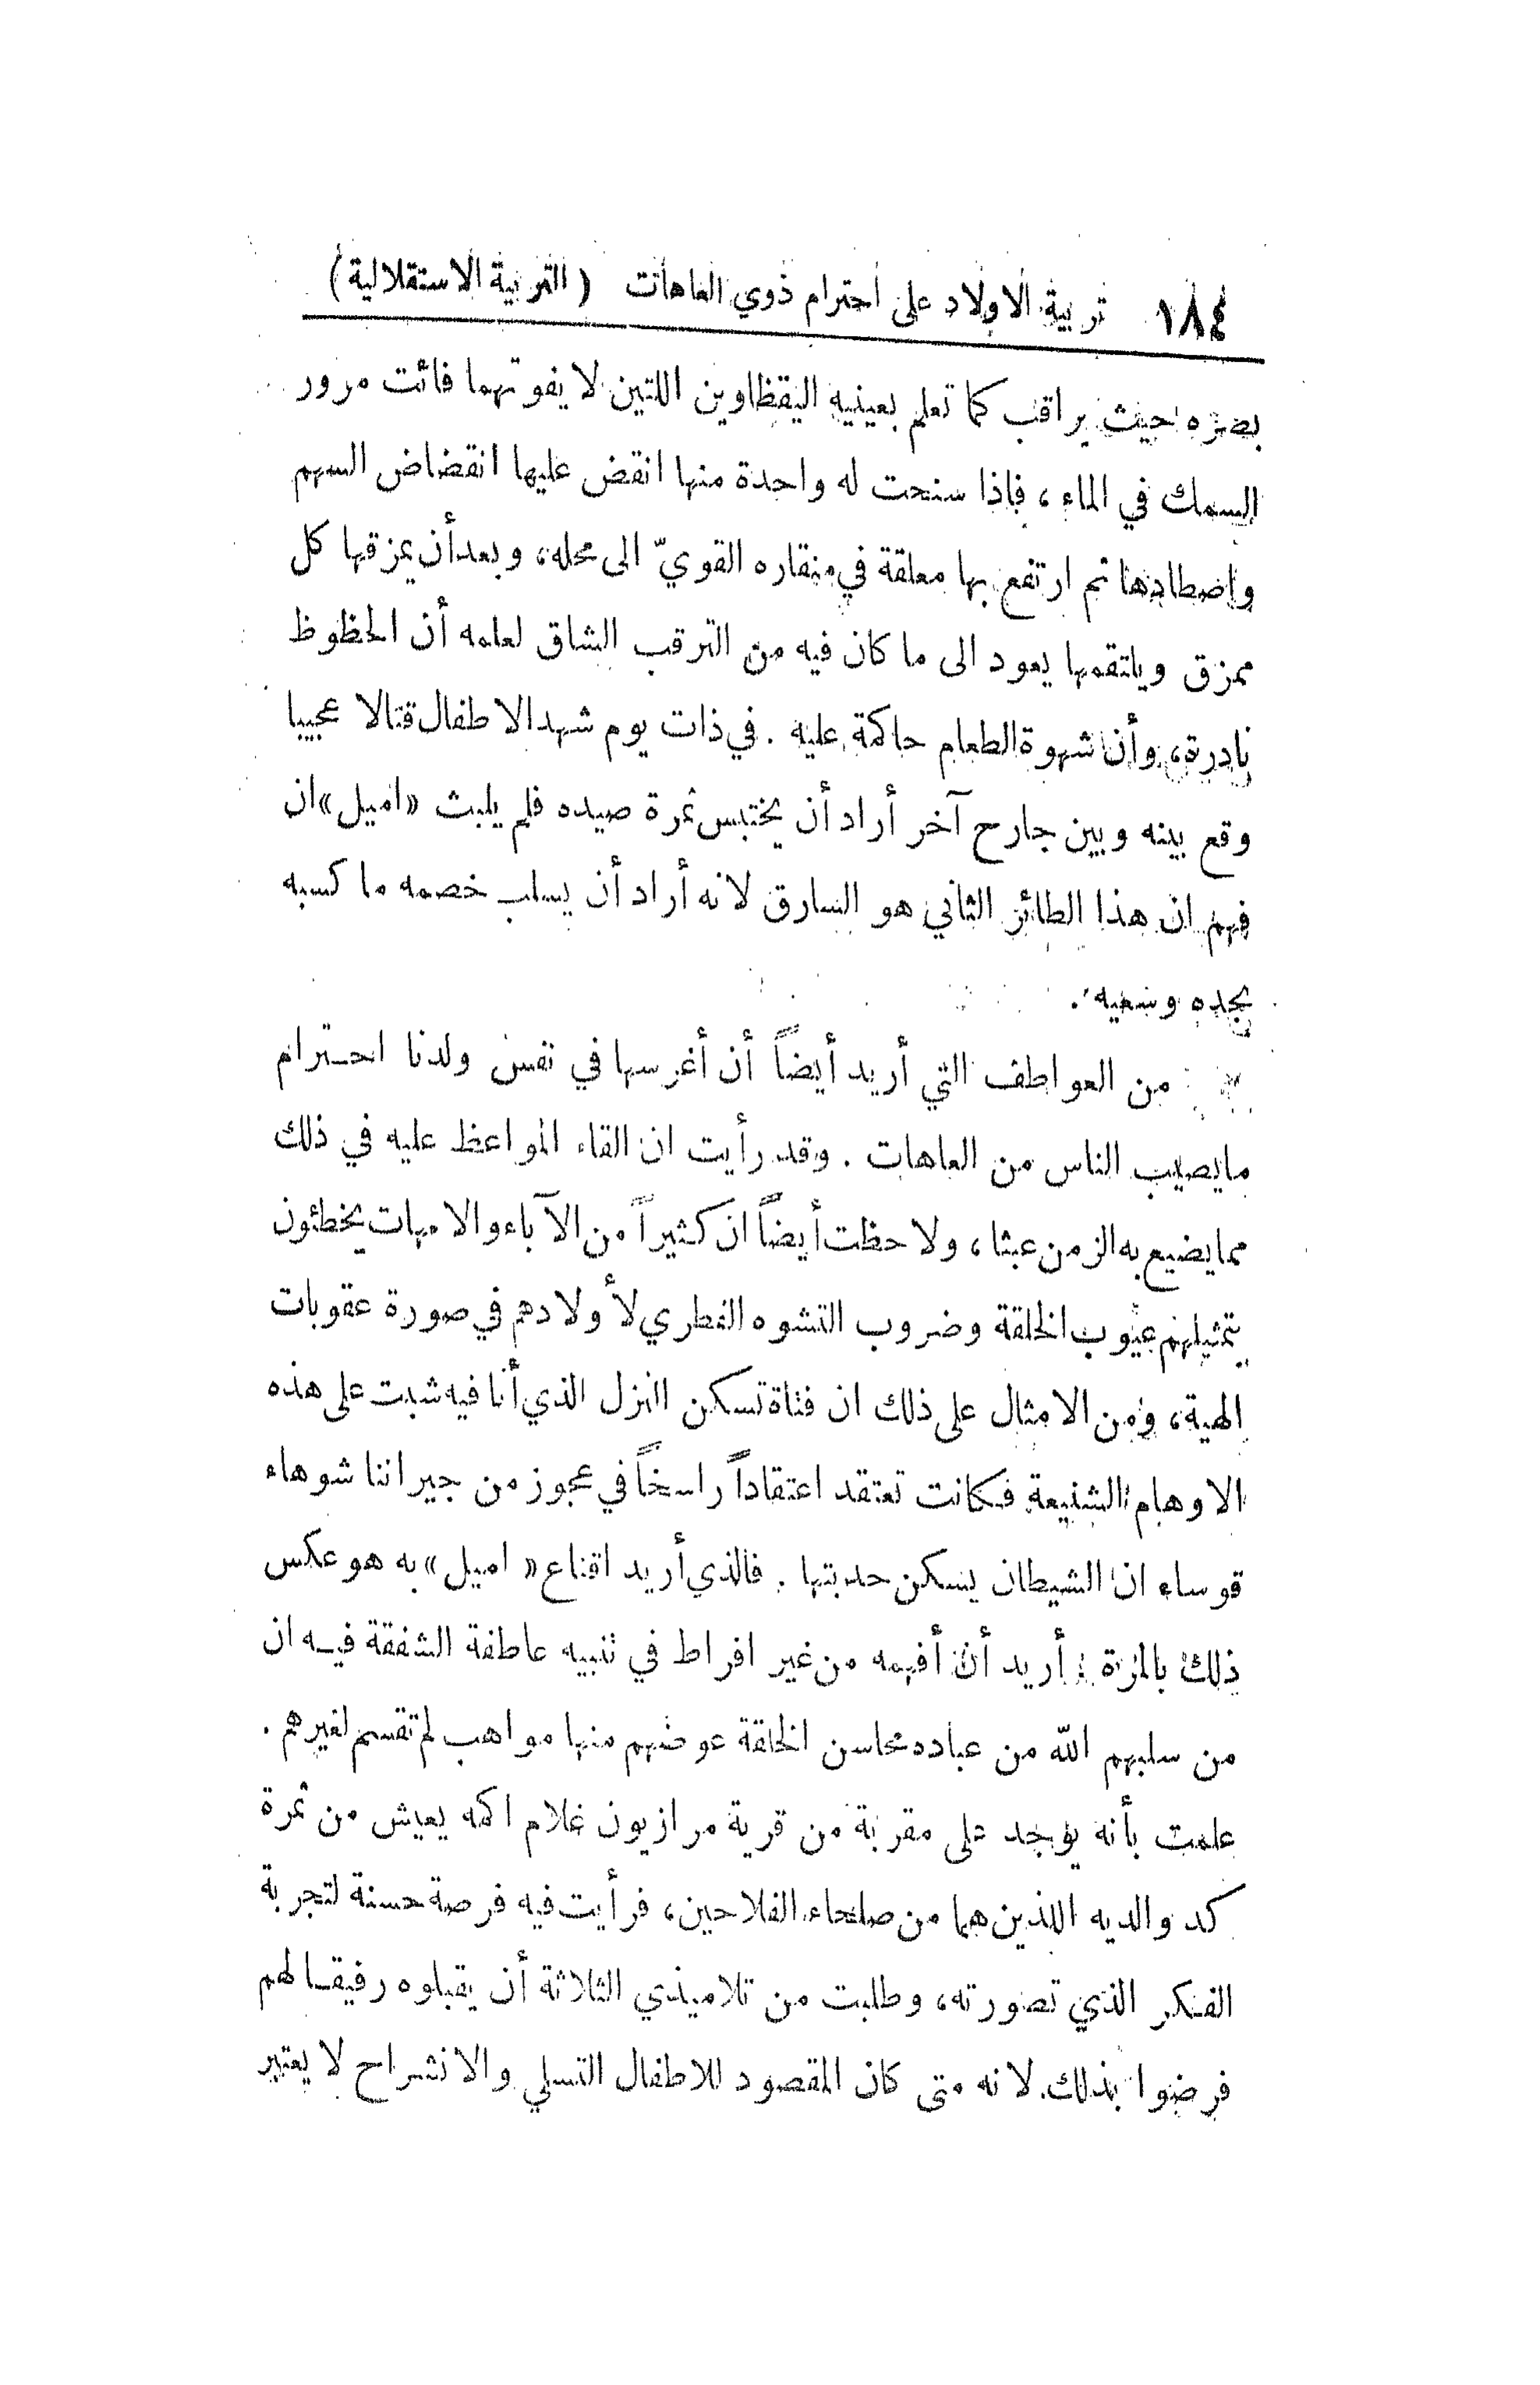 ١٨٤ تربية الاولاد على احترام ذوي العاهات (التربية الاستقلالية)
بصره حيث يراقب كما تعلم بعينيه اليقظاوين اللتين لا يفوتهما فائت مرور
السمك في الماء، فاذا سنحت له واحدة منها انقض عليها انقضاض السهم
واصطادها ثم ارتفع بها معلقة في منقاره القويّ الى محله، وبعد أن يمزقها كل
ممزق ويلتقمها يعود الى ما كان فيه من الترقب الشاق لعلمه أن الحظوظ
نادرة، وأن شهوة الطعام حاكمة عليه . في ذات يوم شهد الاطفال قتالا عجيبا
وقع بينه وبين جارح آخر أراد أن يختبس ثمرة صيده فلم يلبث «اميل» ان
فهم ان هذا الطائر الثاني هو السارق لانه أراد أن يسلب خصمه ما كسبه
بجده وسعيه .
من العواطف التي أريد أيضاً أن أغرسها في نفس ولدنا احترام
مايصيب الناس من العاهات . وقد رأيت ان القاء المواعظ عليه في ذلك
مما يضيع به الزمن عبثا، ولاحظت أيضاً ان كثيراً من الآباء والامهات يخطئون
بتمثيلهم عيوب الخلقة وضروب التشوه الفطري لأولادهم في صورة عقوبات
الهية، ومن الامثال على ذلك ان فتاة تسكن المنزل الذي أنا فيه شبت على هذه
الاوهام الشنيعة فكانت تعتقد اعتقاداً راسخاً في عجوز من جيراننا شوهاء
قوساء ان الشيطان يسكن حدبتها . فالذي أريد اقناع «اميل» به هو عكس
ذلك بالمرة : أريد أن أفهمه من غير افراط في تنبيه عاطفة الشفقة فيه ان
من سلبهم الله من عباده محاسن الخلقة عوضهم منها مواهب لم تقسم لغيرهم .
علمت بأنه يوجد على مقربة من قرية مرازيون غلام اكمه يعيش من ثمرة
كد والديه اللذين هما من صلحاء الفلاحين، فرأيت فيه فرصة حسنة لتجربة
الفكر الذي تصورته، وطلبت من تلاميذي الثلاثة أن يقبلوه رفيقا لهم
فرضوا بذلك لانه متى كان المقصود للاطفال التسلي والانشراح لا يعتبر